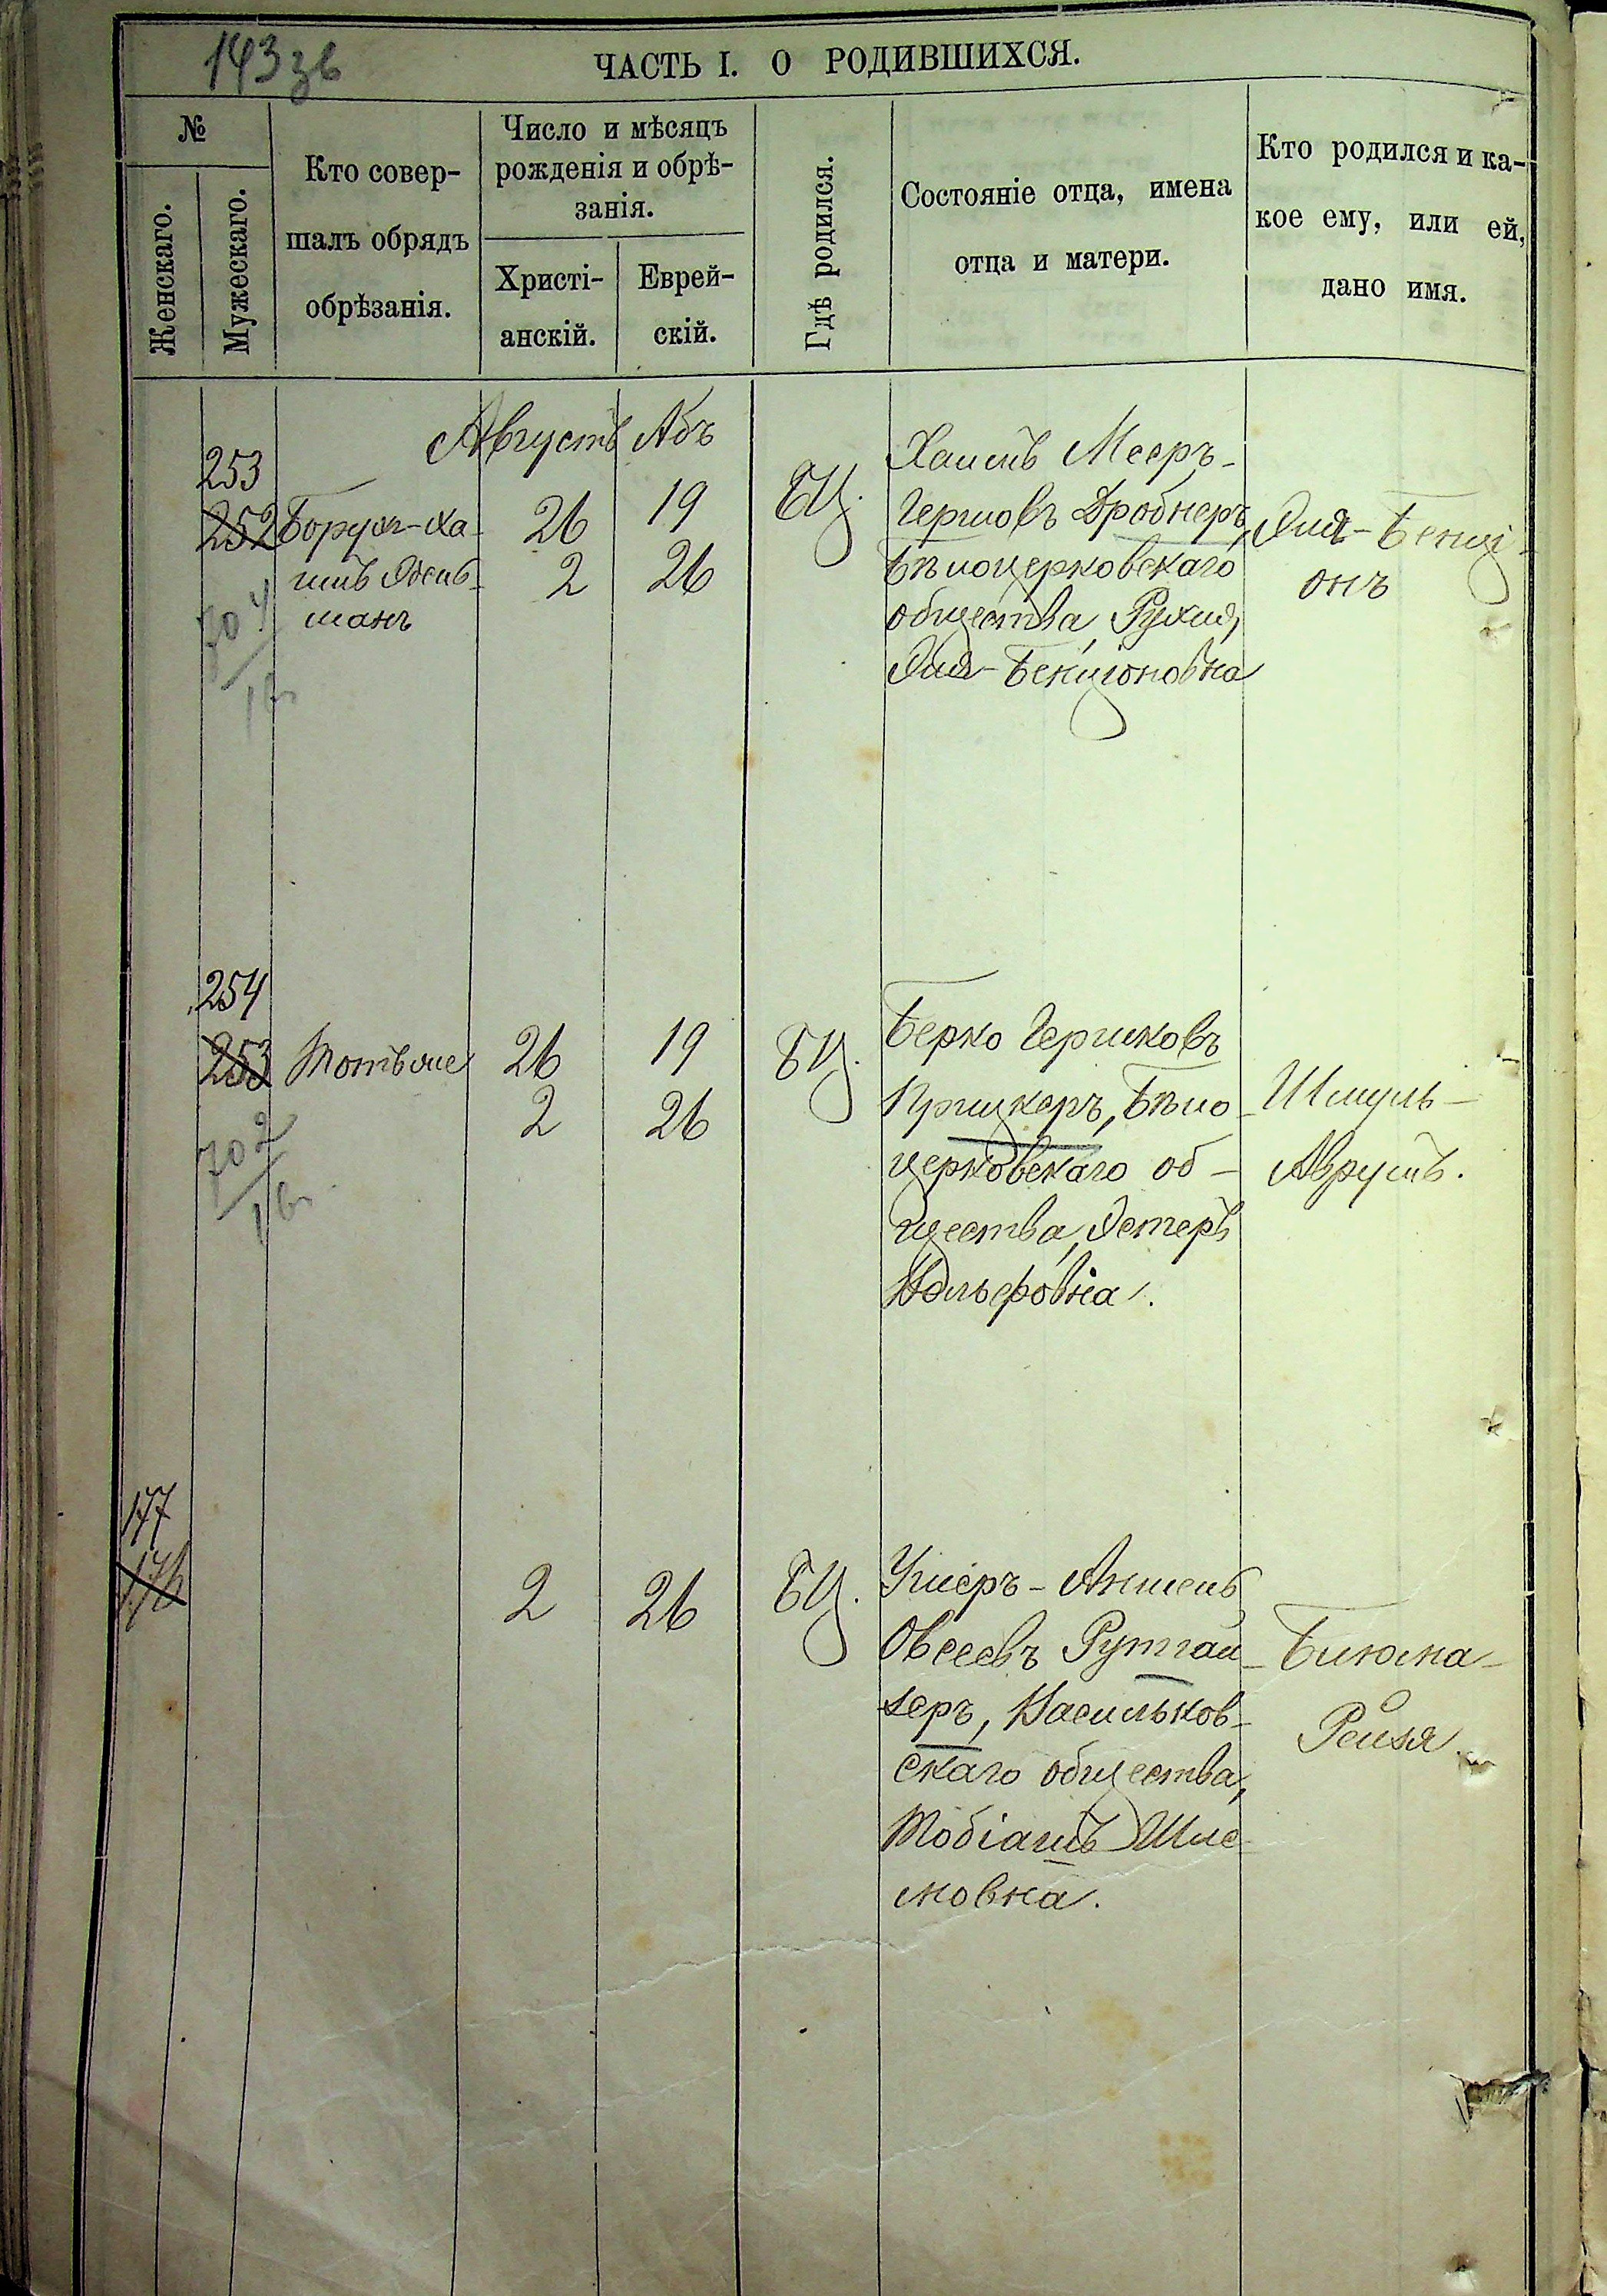 143 зв
ЧАСТЬ I. О РОДИВШИХСЯ.
№
Женскаго.
Мужескаго.
Кто совер-
шалъ обрядъ
обрѣзанія.
Число и мѣсяцъ
рожденія и обрѣ-
занія.
Христі-
анскій.
Еврей-
скій.
Гдѣ родился.
Состояніе отца, имена
отца и матери.
Кто родился и ка-
кое ему, или ей,
дано имя.
Августъ Абъ
253
252 Борухъ-Ха-
имъ Эдель-
манъ
26 19
2 26
БЦ.
Хаимъ Мееръ-
Гершовъ Дробнеръ,
Бѣлоцерковскаго
общества, Рухля
Эля-Бенціоновна
Эля-Бенці-
онъ
254
253
26 19
2 26
БЦ.
Берко Гершковъ
Прицкеръ, Бѣло-
церковскаго об-
щества, Эстеръ
Вольфовна.
Шмуль-
Аврумъ.
702
177
176
2 26
БЦ.
Ушеръ-Аншель
Овсеевъ Рутгай-
зеръ, Васильков-
скаго общества,
Шле-
мовна.
Блюма-
Рейзя.